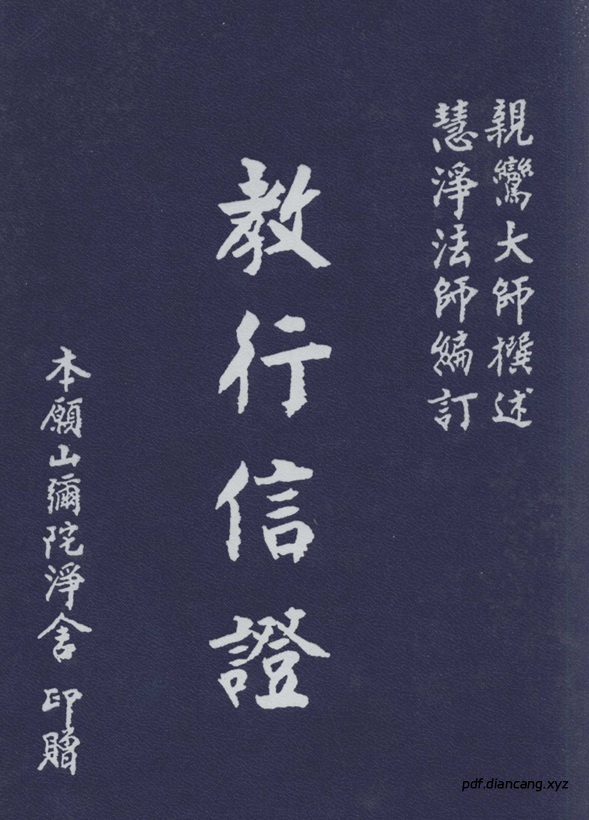 親鸞大師撰述
慧淨法師編訂
教行信證
本願山彌陀淨舍 印贈
pdf.diancang.xyz